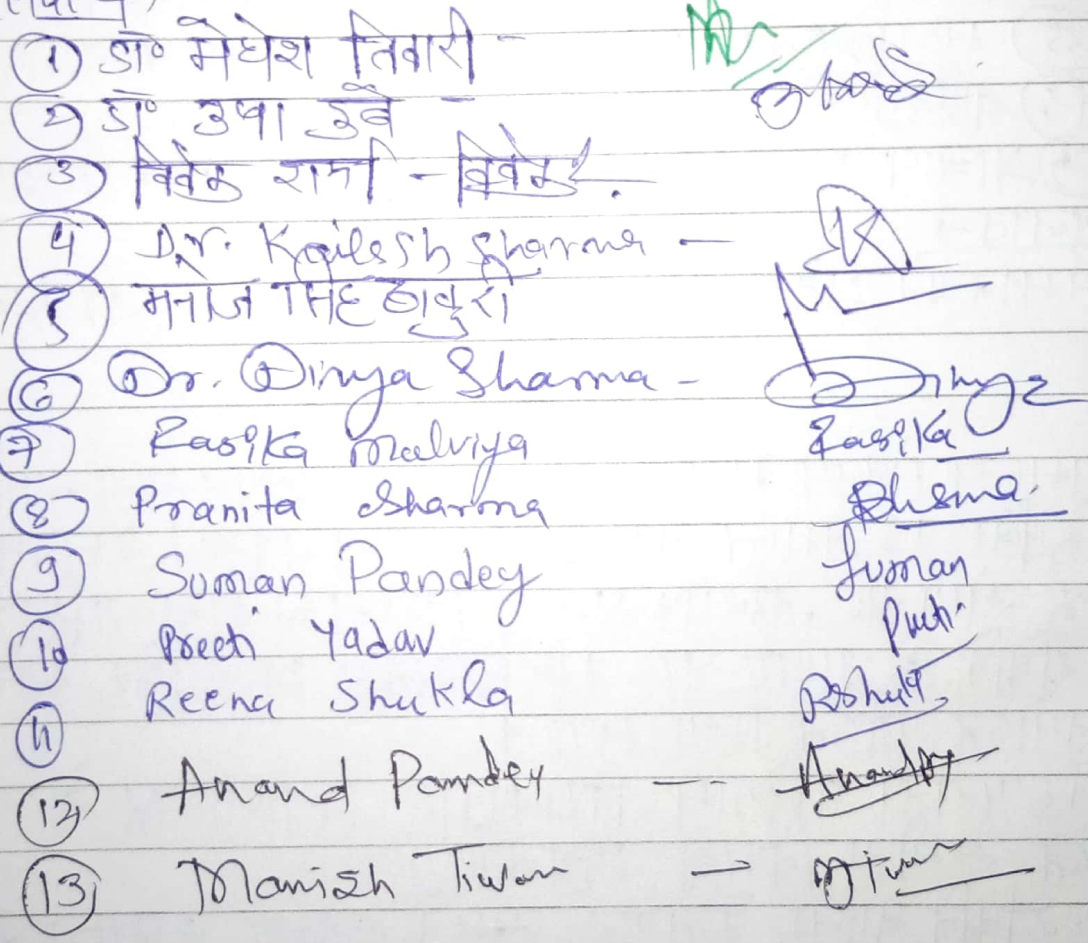 ① डॉ॰ मेघेश तिवारी -
② डॉ॰ उषा दुबे -
③ विवेक शर्मा - विवेक
④ Dr. Kailash Sharma -
⑤ मनोज सिंह ठाकुर
⑥ Dr. Divya Sharma - Divya
⑦ Rasika Malviya Rasika
⑧ Pranita Sharma
⑨ Suman Pandey Suman
⑩ Preeti Yadav Preeti
⑪ Reena Shukla
⑫ Anand Pandey --
⑬ Manish Tiwari -